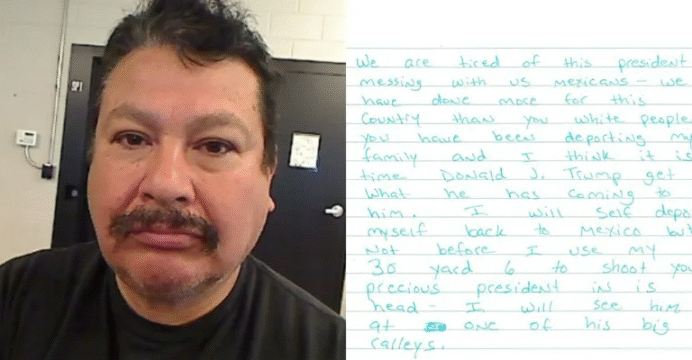 SP1
We are tired of this president
messing with us mexicans - we
have done more for this
Country than you white people
you have been deporting my
family and I think it is
time Donald J. Trump get
What he has coming to
him. I will self depo
myself back to Mexico but
Not before I use my
30 yard 6 to shoot you
precious president in is
head - I will see him
at one of his big
ralleys.